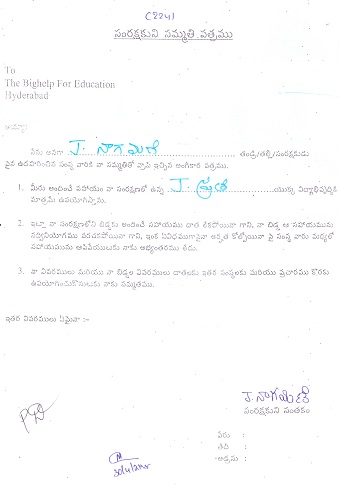 C2241
సంరక్షకుని సమ్మతి పత్రము
To
The Bighelp For Education
Hyderabad
అయ్యా
నేను అనగా J. నాగమణి తండ్రి/తల్లి/సంరక్షకుడు
పైన ఉదహరించిన సంస్థ వారికి నా సమ్మతితో వ్రాసి ఇచ్చిన అంగీకార పత్రము.
1. మీరు అందించే సహాయం నా సంరక్షణలో ఉన్న J. యొక్క విద్యాభివృద్ధికి
మాత్రమే ఉపయోగిస్తాను.
2. ఇట్లా నా సంరక్షణలోని బిడ్డకు అందించే సహాయము దాత లేకపోయినా గాని, నా బిడ్డ ఆ సహాయమును
సద్వినియోగము పరచకపోయినా గాని, ఇంక ఏవిధముగానైనా అర్హత కోల్పోయినా పై సంస్థ వారు మధ్యలో
సహాయమును ఆపివేయుటకు నాకు అభ్యంతరము లేదు.
3. నా వివరములు మరియు నా బిడ్డల వివరములు దాతలకు ఇతర సంస్థలకు మరియు ప్రచారము కొరకు
ఉపయోగించుకొనుటకు నాకు సమ్మతము.
ఇతర వివరములు ఏమైనా :-
J. నాగమణి
సంరక్షకుని సంతకం
పేరు :
తేదీ :
అడ్రసు :